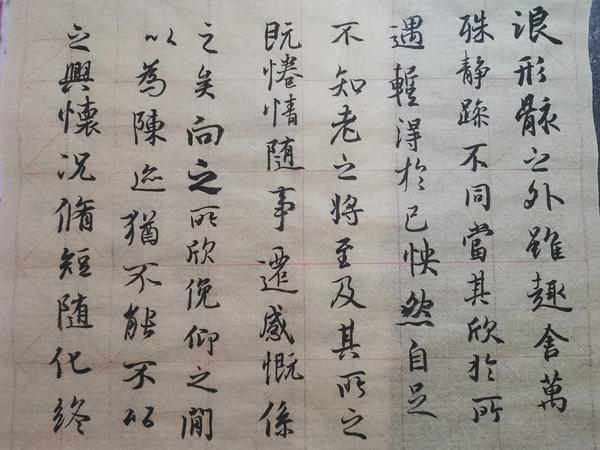 浪形骸之外雖趣舍萬
殊静躁不同當其欣於所
遇輕得於己怏然自足
不知老之將至及其所之
既惓情随事遷感慨係
之矣向之所欣俛仰之澗
以為陳迹猶不能不以
之興懷况脩短随化終